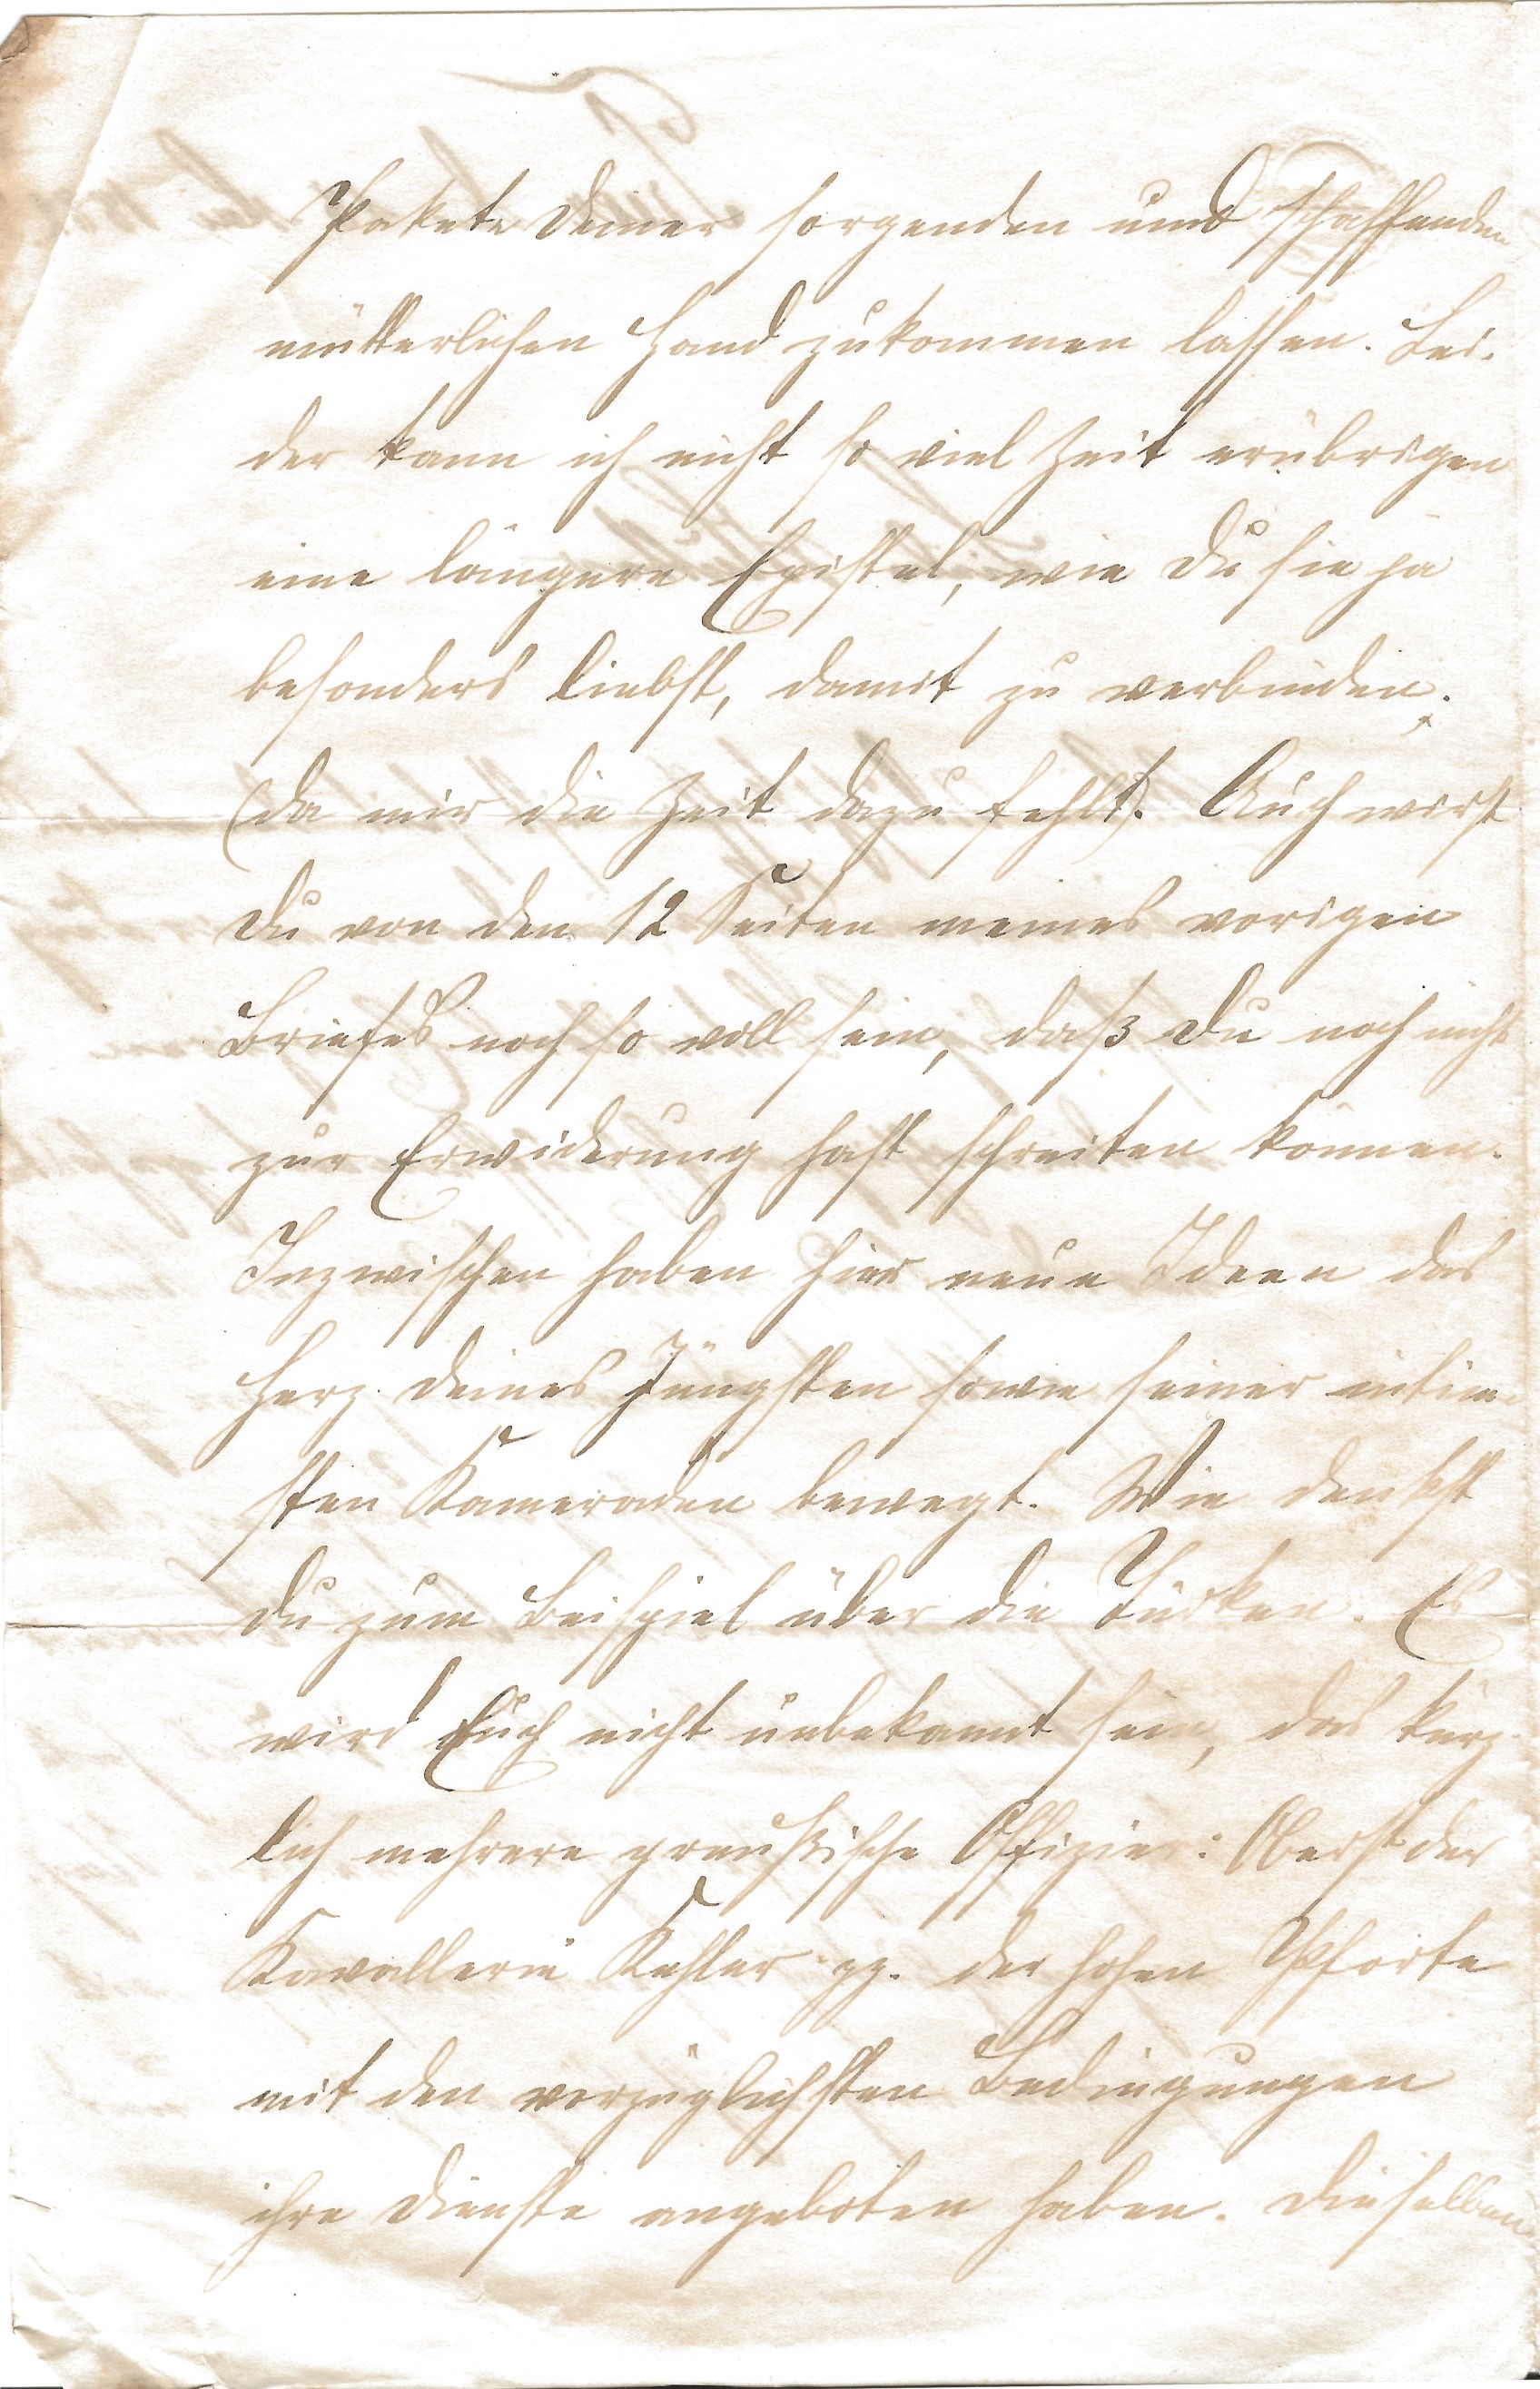 Pakete Deiner sorgenden und schaffenden
mütterlichen Hand zukommen lassen. Lei-
der kann ich nicht so viel Zeit erübrigen
eine längere Epistel, wie Du sie ja
besonders liebst, damit zu verbinden.
(da mir die Zeit dazu fehlt). Auch wirst
Du von den 12 Seiten meines vorigen
Briefes noch so voll sein, daß Du noch nicht
zur Erwiderung hast schreiten können.
Inzwischen haben hier neue Ideen das
Herz Deines Jüngsten sowie seiner intim-
sten Kameraden bewegt. Wie denkst
Du zum Beispiel über die Türken. Es
wird Euch nicht unbekannt sein, das kürz-
lich mehrere preußische Offizier: Oberst der
Kavallerie Kehler pp. der hohen Pforte
mit den vorzüglichsten Bedingungen
ihre Dienste angeboten haben. Dieselben